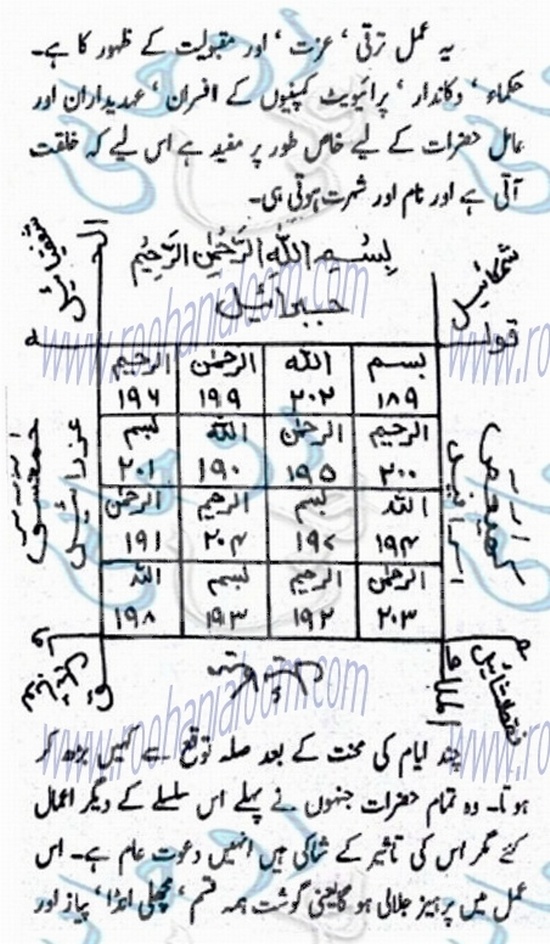 یہ عمل ترقی ‘ عزت ‘ اور مقبولیت کے ظہور کا ہے۔
حکماء ‘ دکاندار ‘ پرائیویٹ کمپنیوں کے افسران ‘ عہدیداران اور
عامل حضرات کے لیے خاص طور پر مفید ہے اس لیے کہ خلقت
آتی ہے اور نام اور شہرت ہوتی ہی۔
بِسْمِ اللهِ الرَّحْمٰنِ الرَّحِيْمِ
جبرائیل
قولہ
بسم الله الرحمٰن الرحيم
۱۸۹ ۲۰۲ ۱۹۹ ۱۹۶
الرحيم الرحمٰن الله بسم
۲۰۰ ۱۹۵ ۱۹۰ ۲۰۱
الله بسم الرحيم الرحمٰن
۱۹۴ ۱۹۷ ۲۰۴ ۱۹۱
الرحمٰن الرحيم بسم الله
۲۰۳ ۱۹۲ ۱۹۳ ۱۹۸
كهيعص
اسرافیل
عزرائیل
حمعسق
الملك
چند ایام کی محنت کے بعد صلہ توقع سے کہیں بڑھ کر
ہوتا۔ وہ تمام حضرات جنہوں نے پہلے اس سلسلے کے دیگر اعمال
کئے مگر اس کی تاثیر کے شاکی ہیں انہیں دعوت عام ہے۔ اس
عمل میں پرہیز جلالی ہو گا یعنی گوشت ہمہ قسم ‘ مچھلی انڈا ‘ پیاز اور
www.roohanialoom.com
www.roohanialoom.com